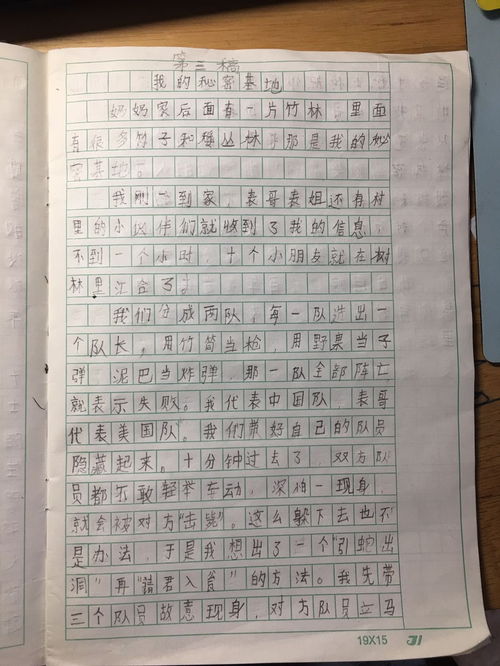 第三稿
我的秘密基地
奶奶家后面有一片竹林，里面
有很多竹子和矮丛林，那是我的秘
密基地。
我刚到家，表哥表姐还有村
里的小伙伴们就收到了我的信息，
不到一个小时，十个小朋友就在树
林里汇合了。
我们分成两队，每一队选出一
个队长，用竹筒当枪，用野果当子
弹，泥巴当炸弹，那一队全部阵亡
就表示失败。我代表中国队，表哥
代表美国队"。我们带好自己的队员
隐藏起来。十分钟过去了，双方队
员都不敢轻举车动，深怕一现身，
就会被对方"击毙"。这么躲下去也不
是办法，于是我想出了一个"引蛇出
洞"再"请君入瓮"的方法。我先带
三个队员故意现身，对方队员立马
19X15